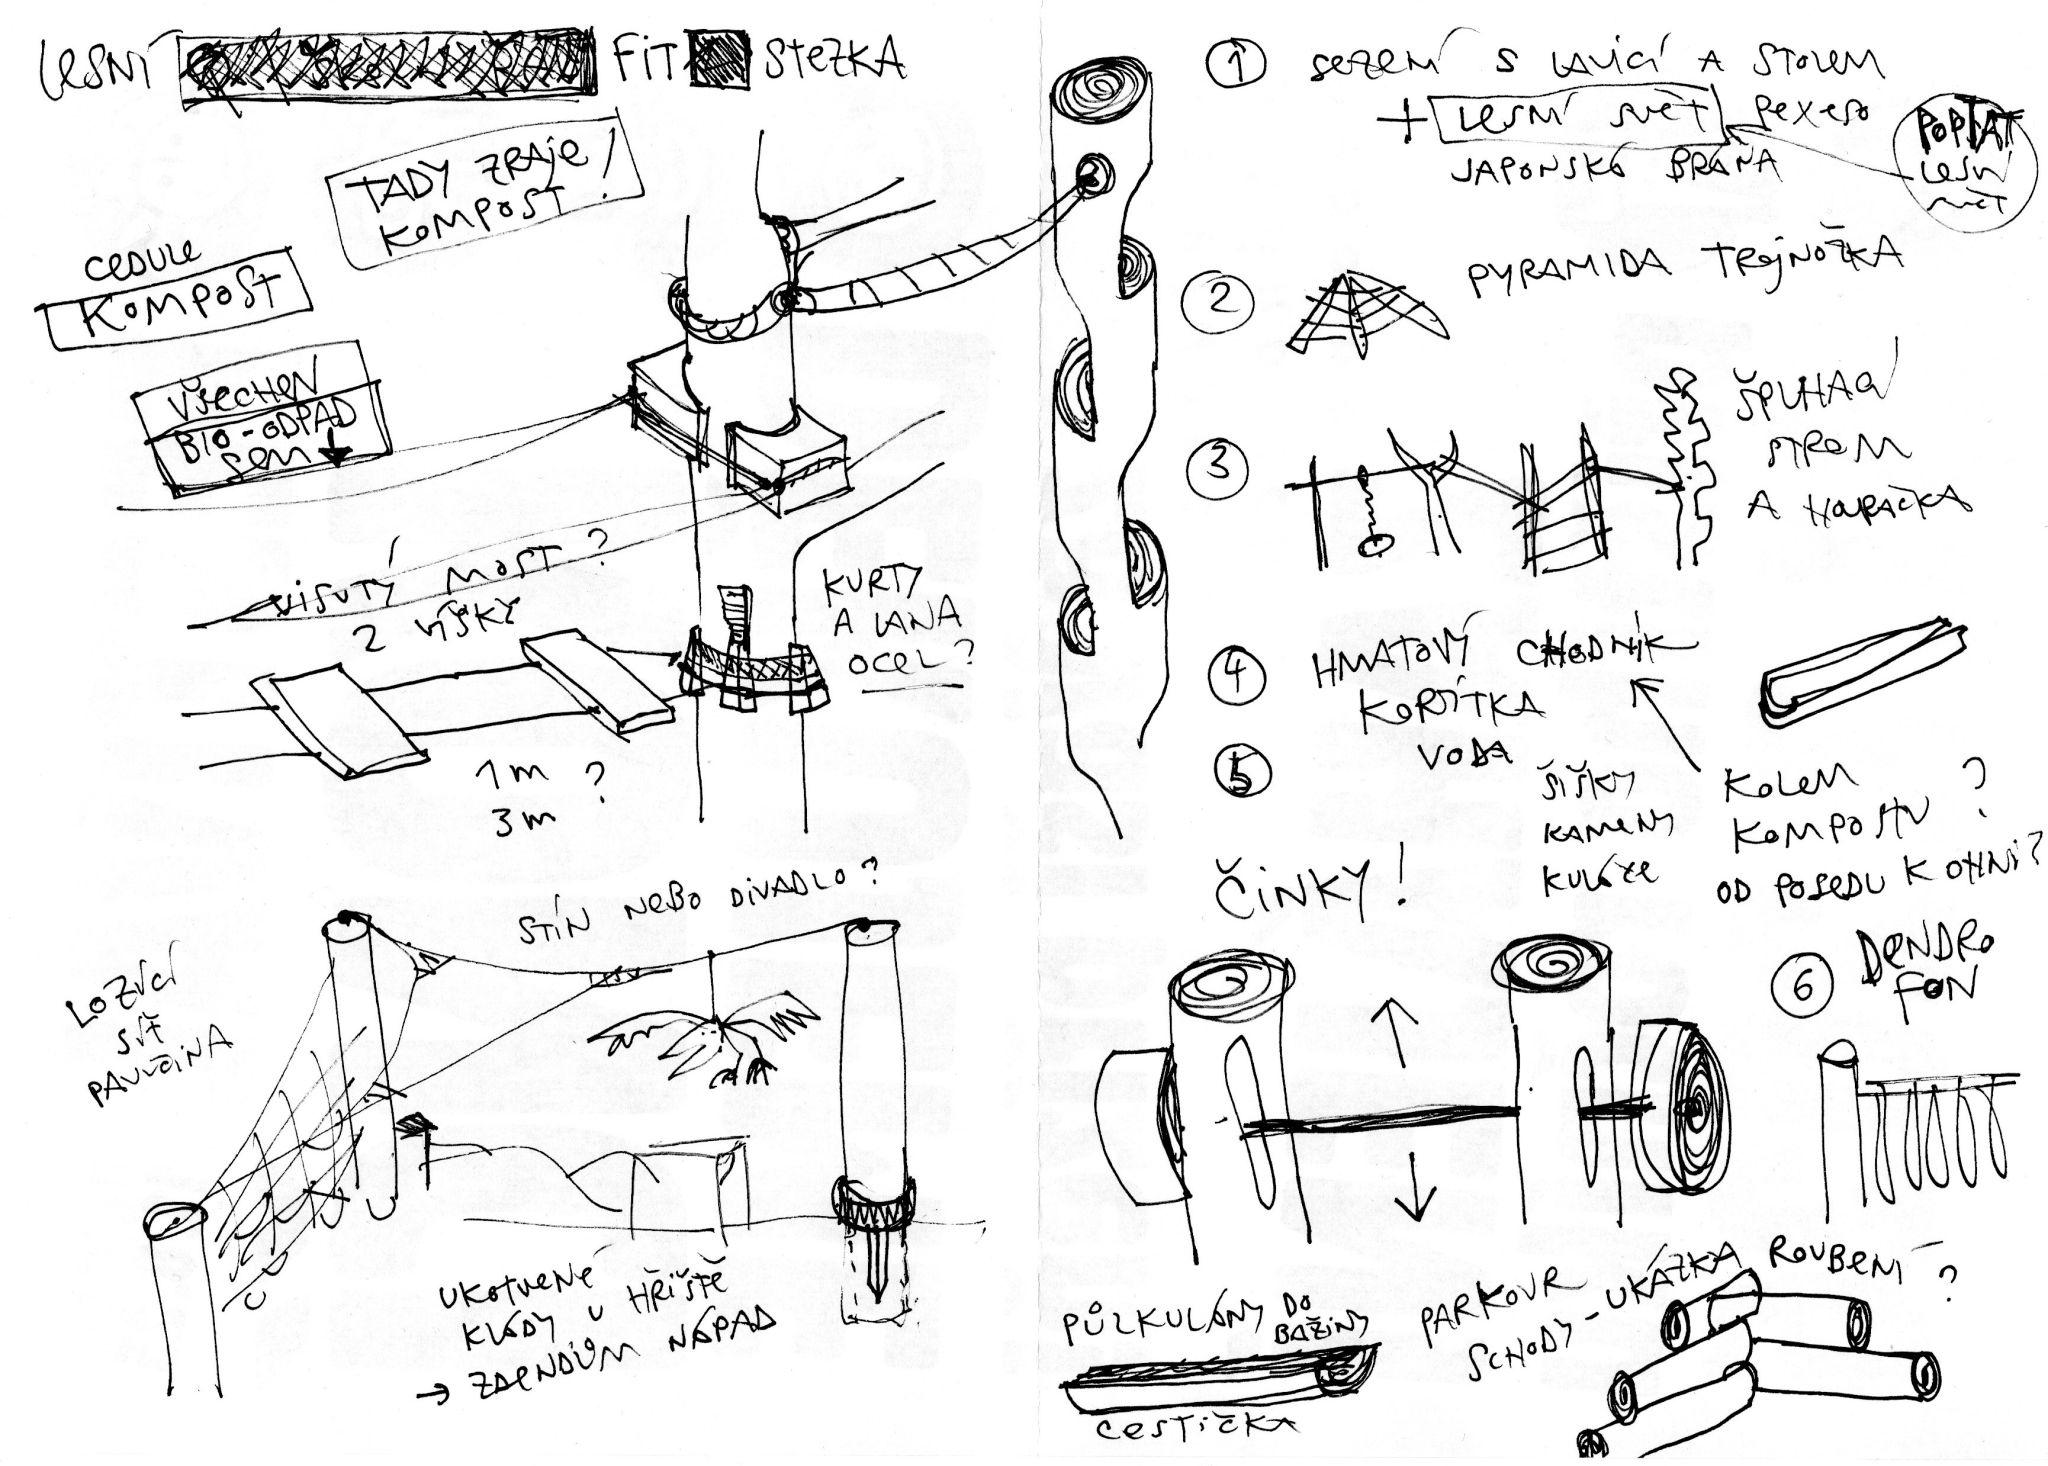 LESNÍ FIT STEZKA
TADY ZRAJE
KOMPOST!
CEDULE
KOMPOST
VŠECHEN
BIO-ODPAD
SEM
VISUTÝ MOST?
2 VÝŠKY
KURTY
A LANA
OCEL?
1m
3m ?
STÍN NEBO DIVADLO?
LOZÍCÍ
SÍŤ
PAVUČINA
UKOTVENÉ
KLÁDY U HŘIŠTĚ
→ ZDENDŮM NÁPAD
1 SEZENÍ S LAVICÍ A STOLEM
+ LESNÍ SVĚT PEXESO
JAPONSKÁ BRÁNA
POPTAT
LESNÍ
SVĚT
2 PYRAMIDA TROJNOŽKA
3 ŠPLHACÍ
STROM
A HOUPAČKA
4 HMATOVÝ CHODNÍK
KORÝTKA
VODA
5
ŠIŠKY
KAMENY
KULÁČE
KOLEM
KOMPOSTU ?
OD POSEDU K OHNI?
ČINKY!
6 DENDRO
FON
PŮLKULÁNY DO
BAŽINY
CESTIČKA
PARKOUR
SCHODY - UKÁZKA ROUBENÍ ?